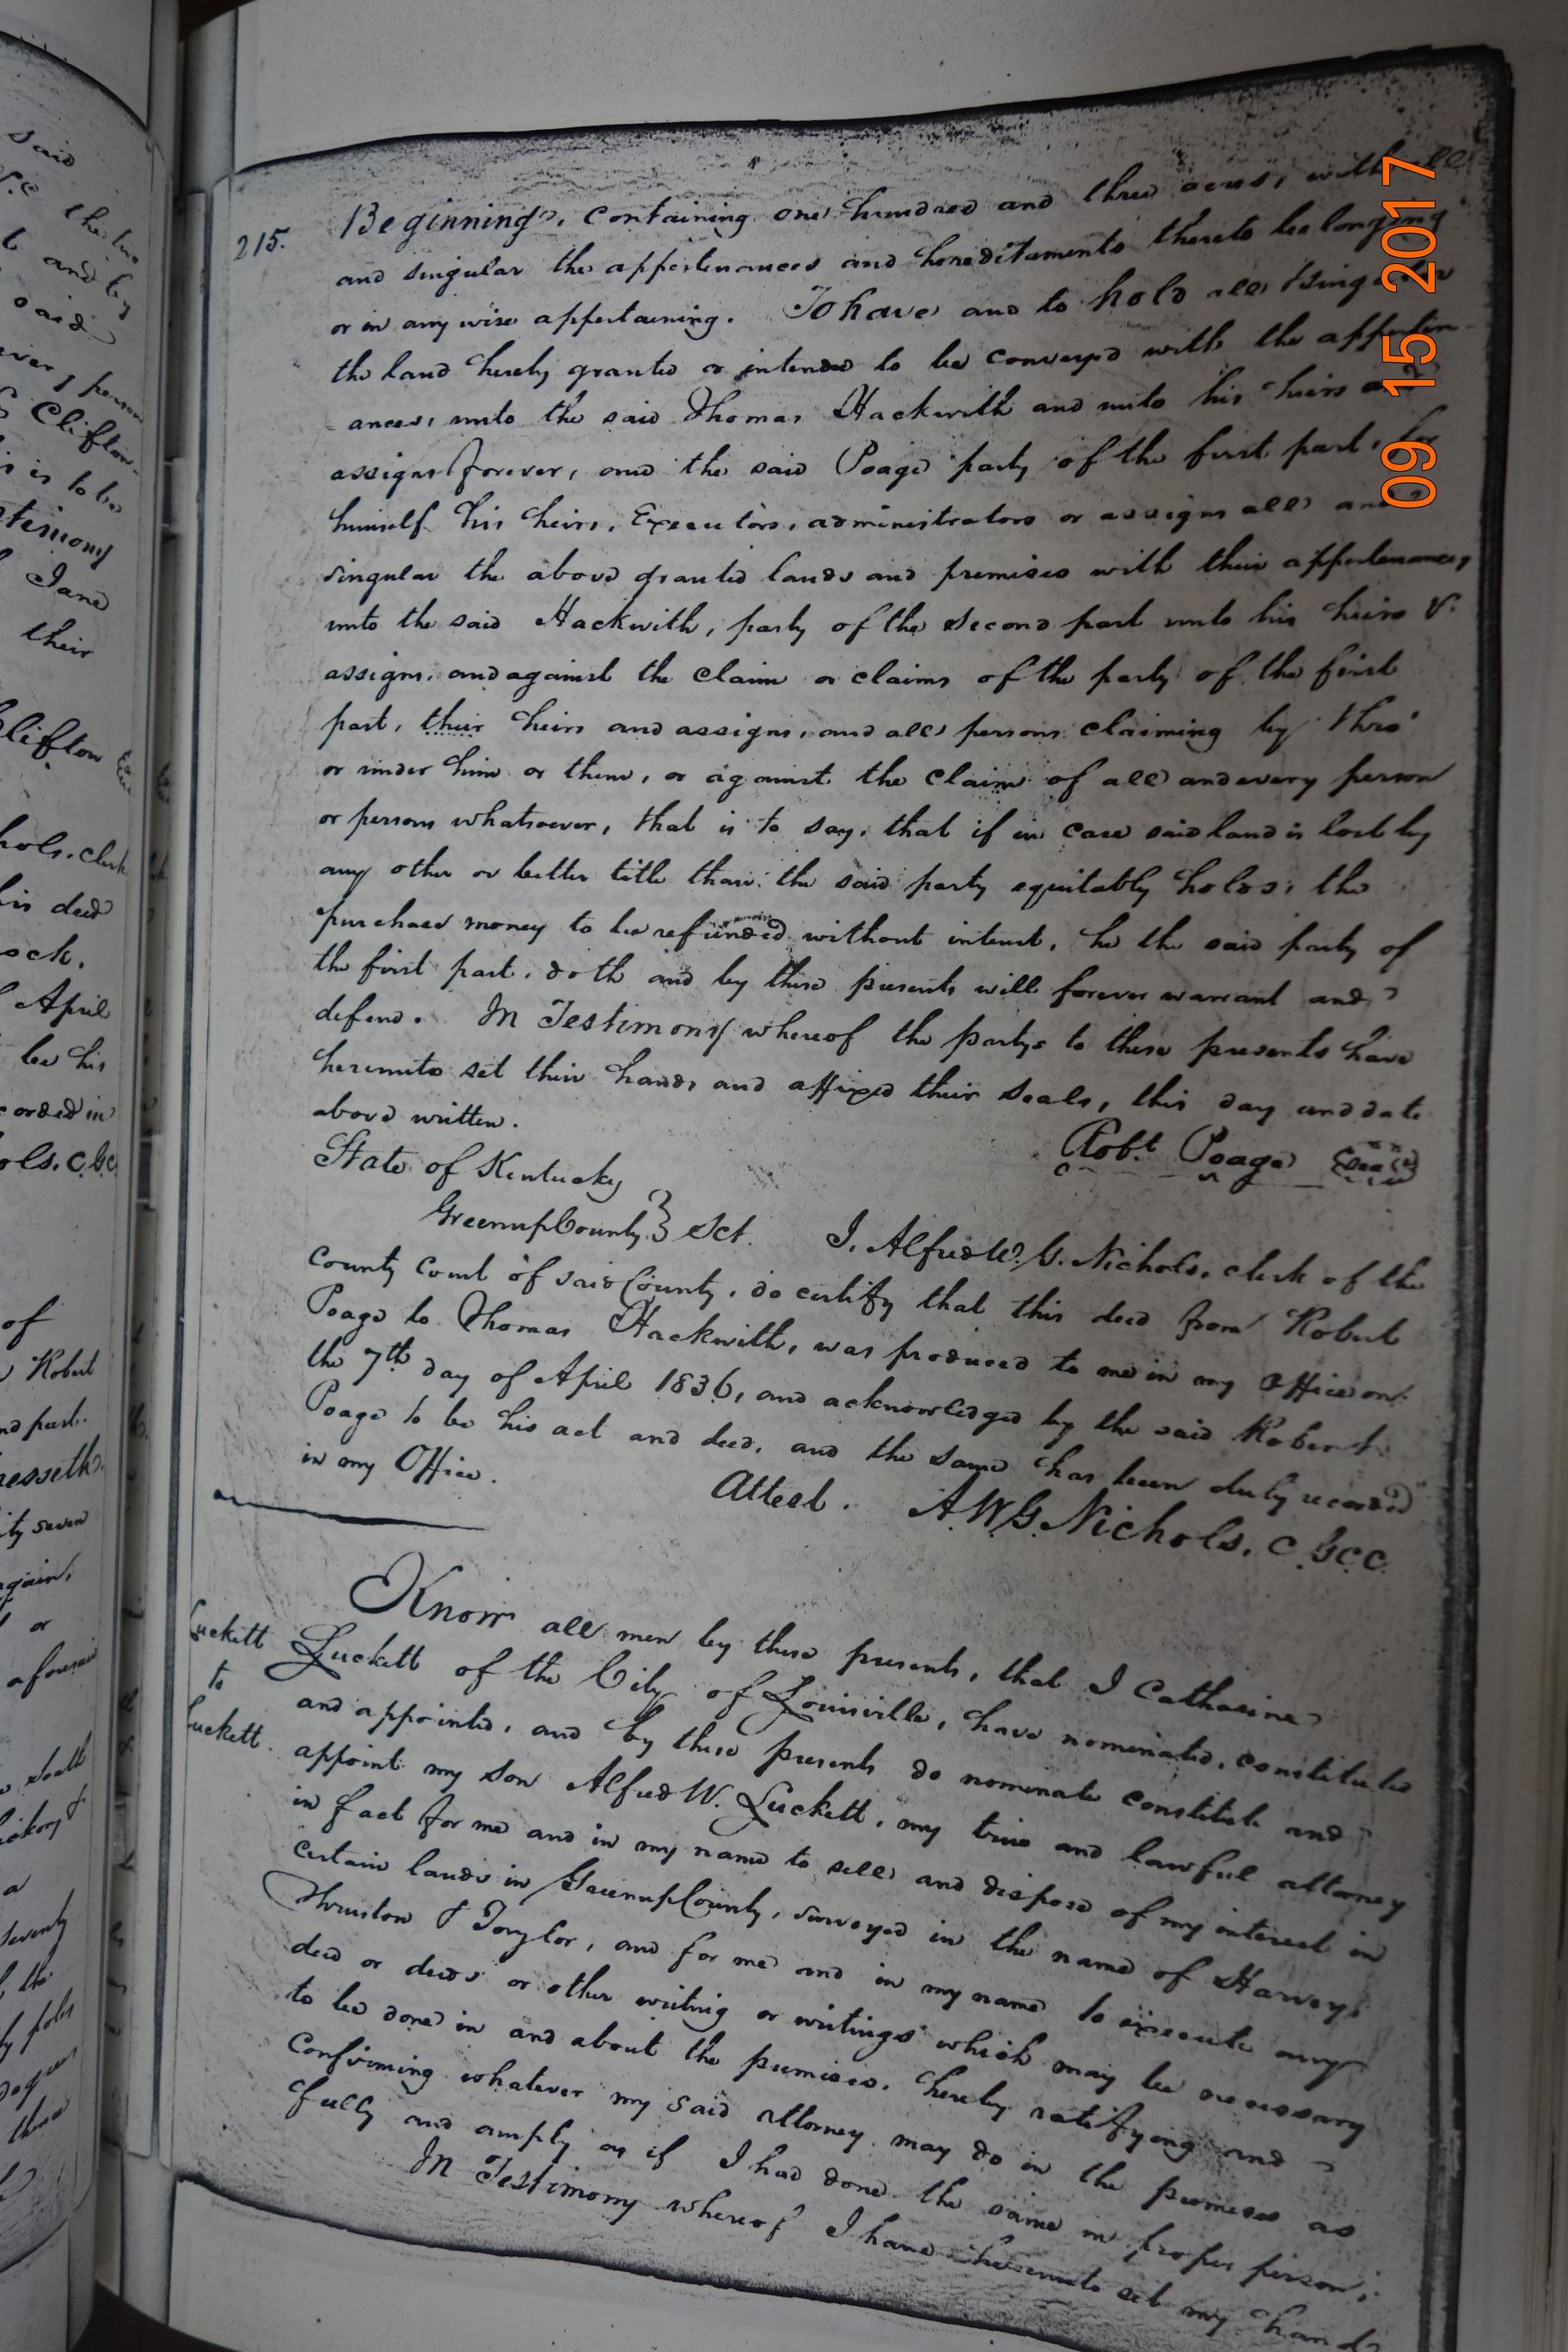 215.
Beginning, containing one hundred and three acres, with all
and singular the appertenances and hereditaments thereto belonging
or in any wise appertaining. To have and to hold all & singular
the land hereby granted or intended to be conveyed with the apperten-
ances, unto the said Thomas Hackwith and unto his heirs and
assigns forever, and the said Poage party of the first part, for
himself his heirs, Executors, administrators or assigns all and
singular the above granted lands and premises with their appertenances,
unto the said Hackwith, party of the second part unto his heirs &
assigns, and against the claim or claims of the party of the first
part, their heirs and assigns, and all persons claiming by thro'
or under him or them, or against the claim of all and every person
or persons whatsoever, that is to say, that if in case said land is lost by
any other or better title than the said party equitably holds, the
purchase money to be refunded without interest, he the said party of
the first part, doth and by these presents will forever warrant and
defend. In Testimony whereof the partys to these presents have
hereunto set their hands and affixed their seals, this day and date
above written.
Robt Poage Seal
State of Kentucky
Greenup County } Sct. I, Alfred W. G. Nichols, clerk of the
County Court of said County, do certify that this deed from Robert
Poage to Thomas Hackwith, was produced to me in my Office on
the 7th day of April 1836, and acknowledged by the said Robert
Poage to be his act and deed, and the same has been duly recorded
in my Office.
Attest. A.W.G. Nichols, C.G.C.C.
Know all men by these presents, that I Catharine
Luckett
to
Luckett.
Luckett of the City of Louisville, have nominated, constituted
and appointed, and by these presents do nominate constitute and
appoint my son Alfred W. Luckett, my true and lawful attorney
in fact for me and in my name to sell and dispose of my interest in
certain lands in Greenup County, surveyed in the name of Harvey,
Thruston & Taylor, and for me and in my name to execute any
deed or deeds or other writing or writings which may be necessary
to be done in and about the premises, hereby ratifying and
Confirming whatever my said attorney may do in the premises as
fully and amply as if I had done the same in proper person;
In Testimony whereof I have hereunto set my hand
09 15 2017
said
and by
said
Clifton
is to be
Testimony
Jane
their
Clifton
clerk
his deed
April
be his
of
Robert
nd part.
ity seven
or
aforesaid
a
seventy
these